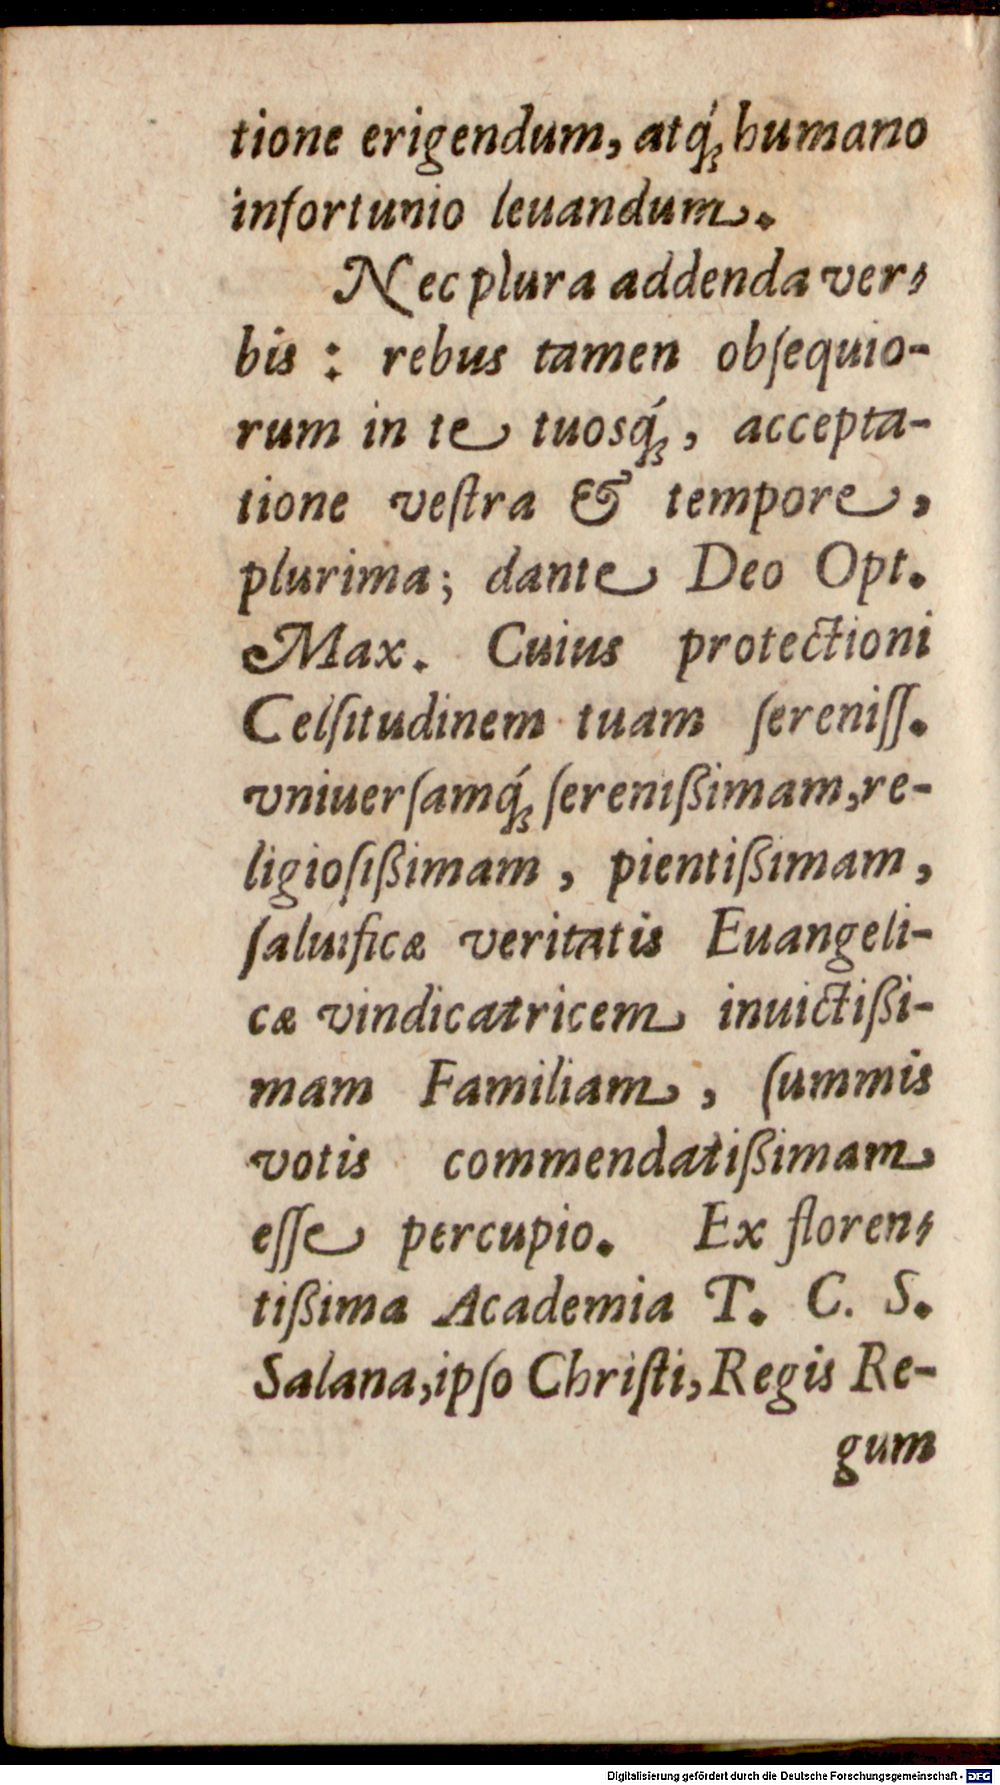 tione erigendum, atq́ꝫ humano
infortunio leuandum.
Nec plura addenda ver-
bis : rebus tamen obſequio-
rum in te tuosq́ꝫ, accepta-
tione veſtra & tempore,
plurima; dante Deo Opt.
Max. Cuius protectioni
Celſitudinem tuam ſereniſſ.
vniuerſamq́ꝫ ſereniſſimam, re-
ligioſiſſimam, pientiſſimam,
ſaluificæ veritatis Euangeli-
cæ vindicatricem inuictiſſi-
mam Familiam, ſummis
votis commendatiſſimam
eſſe percupio. Ex floren-
tiſſima Academia T. C. S.
Salana, ipſo Chriſti, Regis Re-
gum
Digitalisierung gefördert durch die Deutsche Forschungsgemeinschaft - DFG